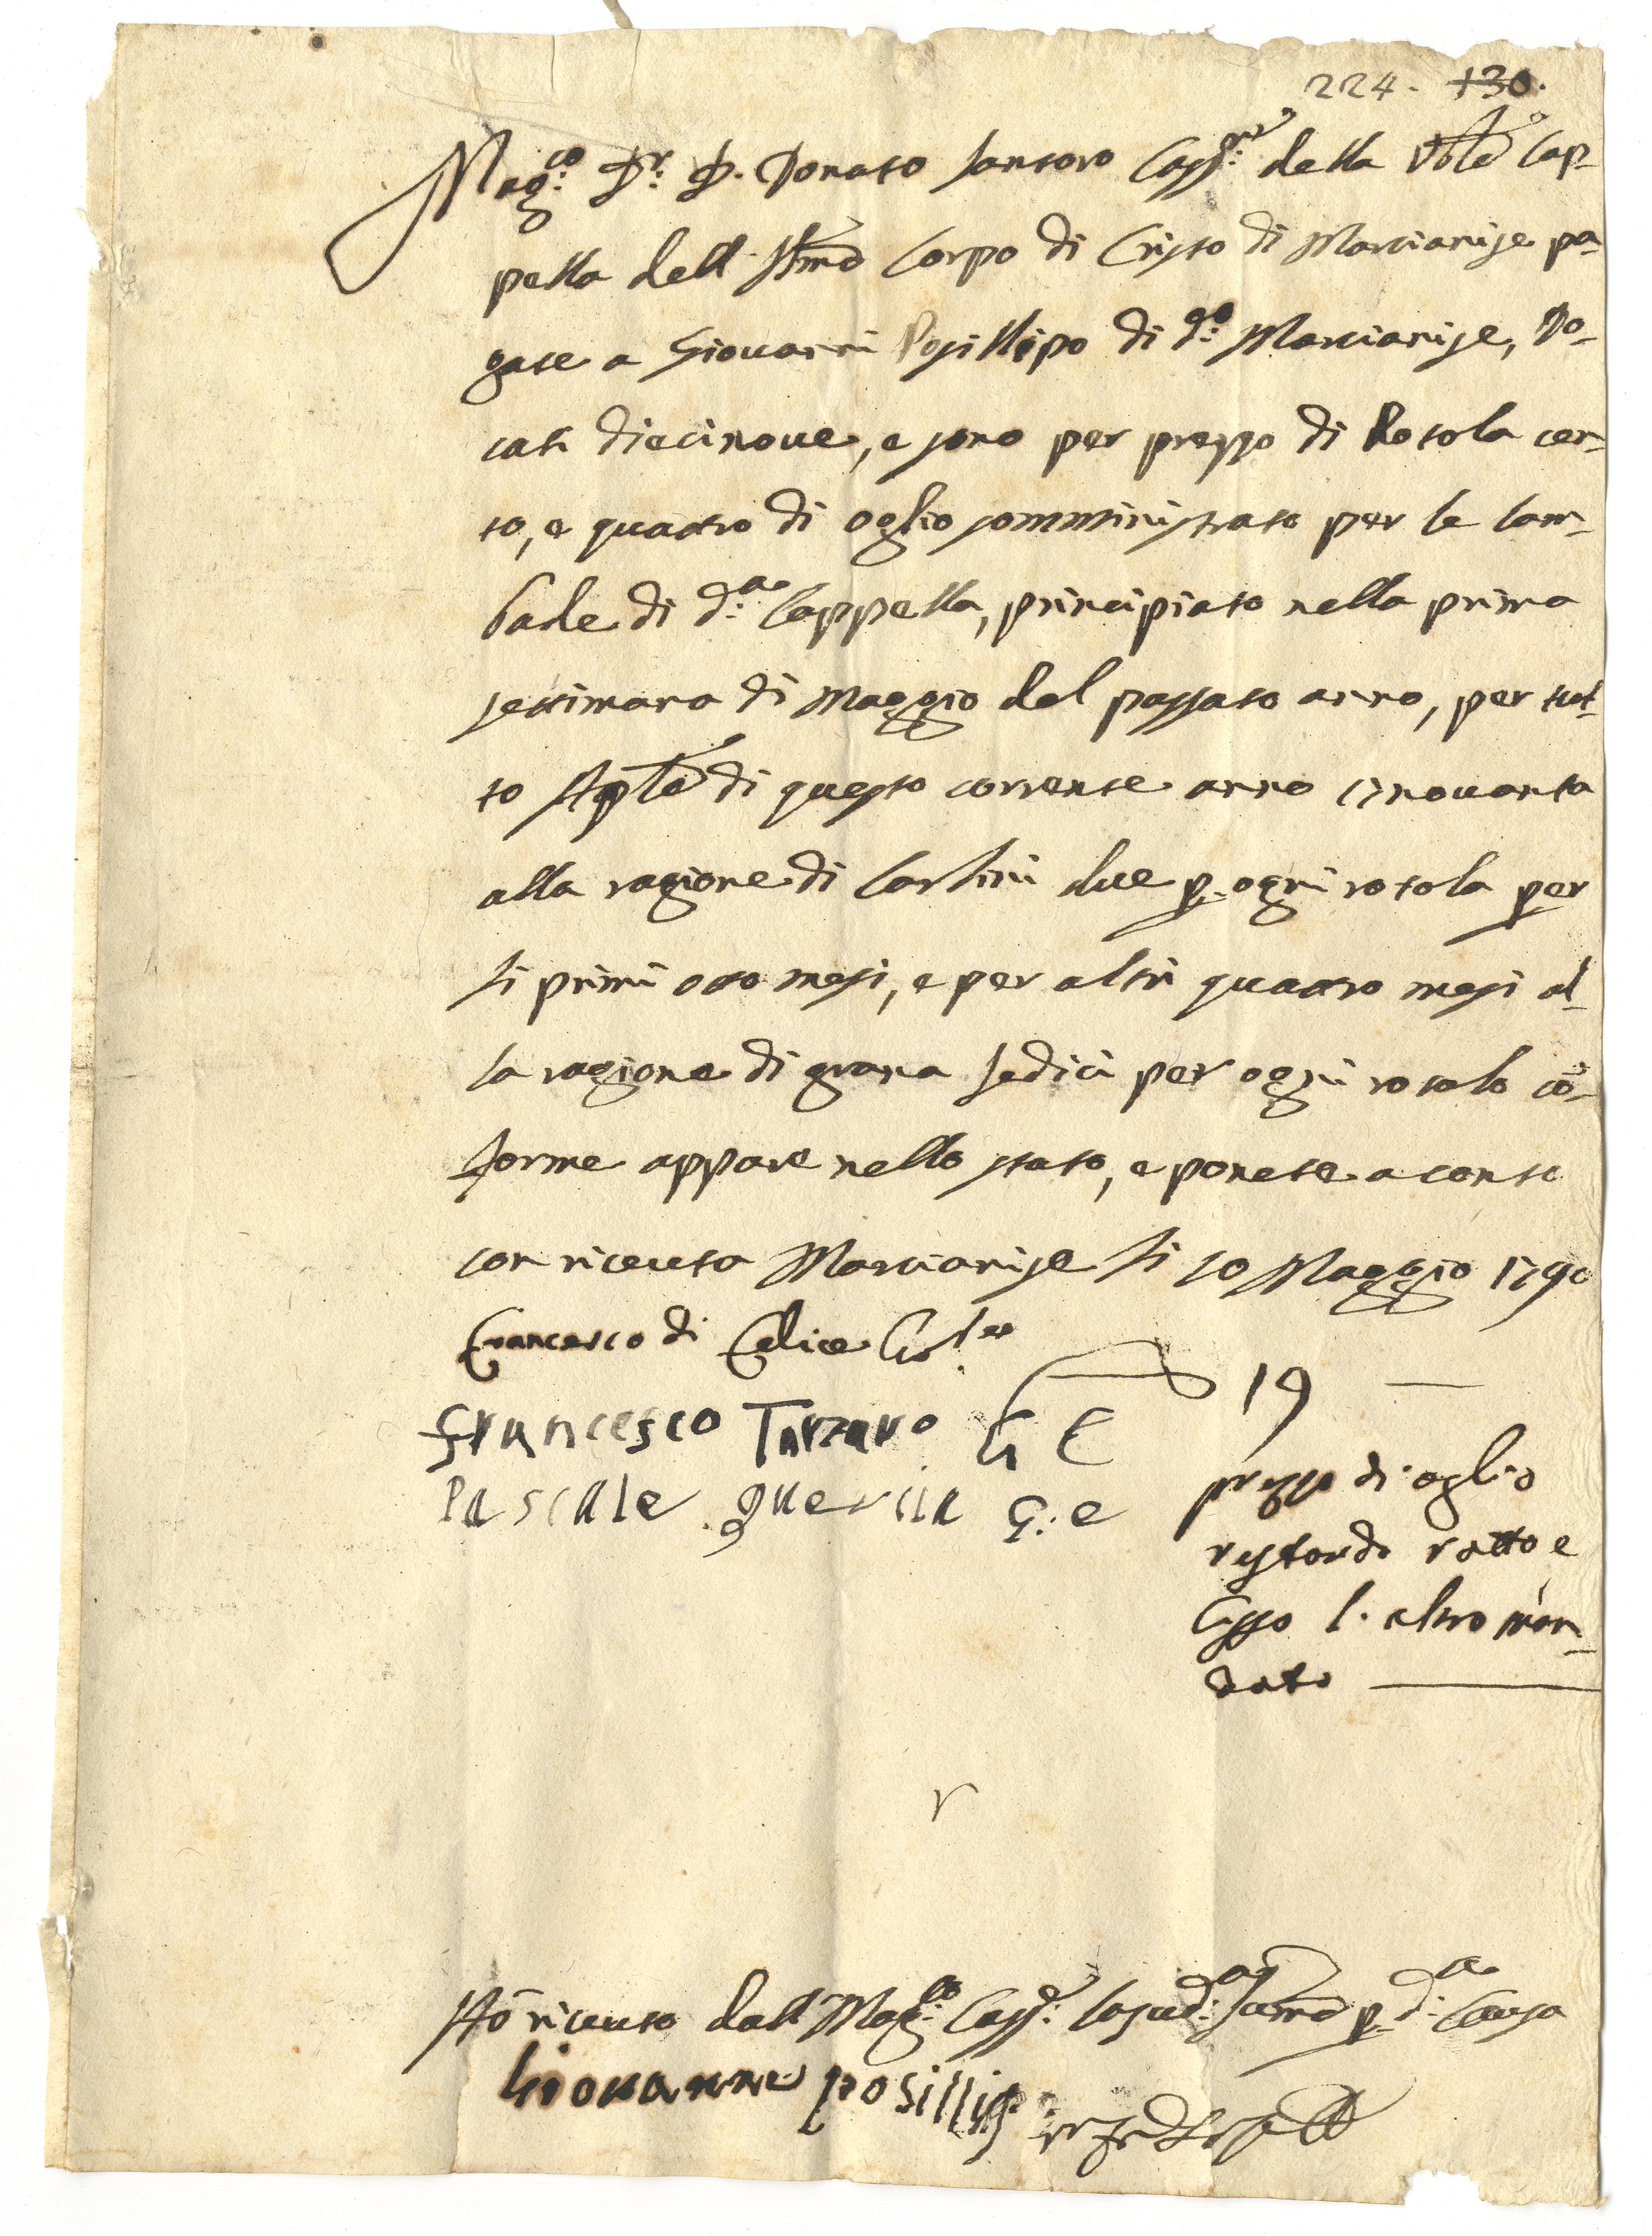 224. 130.
Mag.co Dr. D. Donato Santoro Cass.re della Vble Cap-
pella dell SSmo Corpo di Cristo di Marcianise pa-
gate a Giovanni Posillipo di d.o Marcianise, Do-
cati diecinove, e sono per prezzo di Rotola cen-
to, e quattro di oglio somministrato per le lam-
bade di d.a Cappella, principiato nella prima
settimana di Maggio del passato anno, per tut-
to Aple di questo corrente anno 17novanta
alla ragione di Carlini due p. ogni rotola per
li primi otto mesi, e per altri quattro mesi al-
la ragione di grana sedici per ogni rotolo cō-
forme appare nello stato, e ponete a conto
con riceuta Marcianise li 10 Maggio 1790
Francesco di Felice
Francesco Tarzano G E
19 —
Pascale quercia G: e
prezzo di oglio
restando rotto e
Casso l. altro man-
dato —
Hō riceuto dall Mag.co Cass.e la sud.a summa p d.a Causa
Giovanne posillip